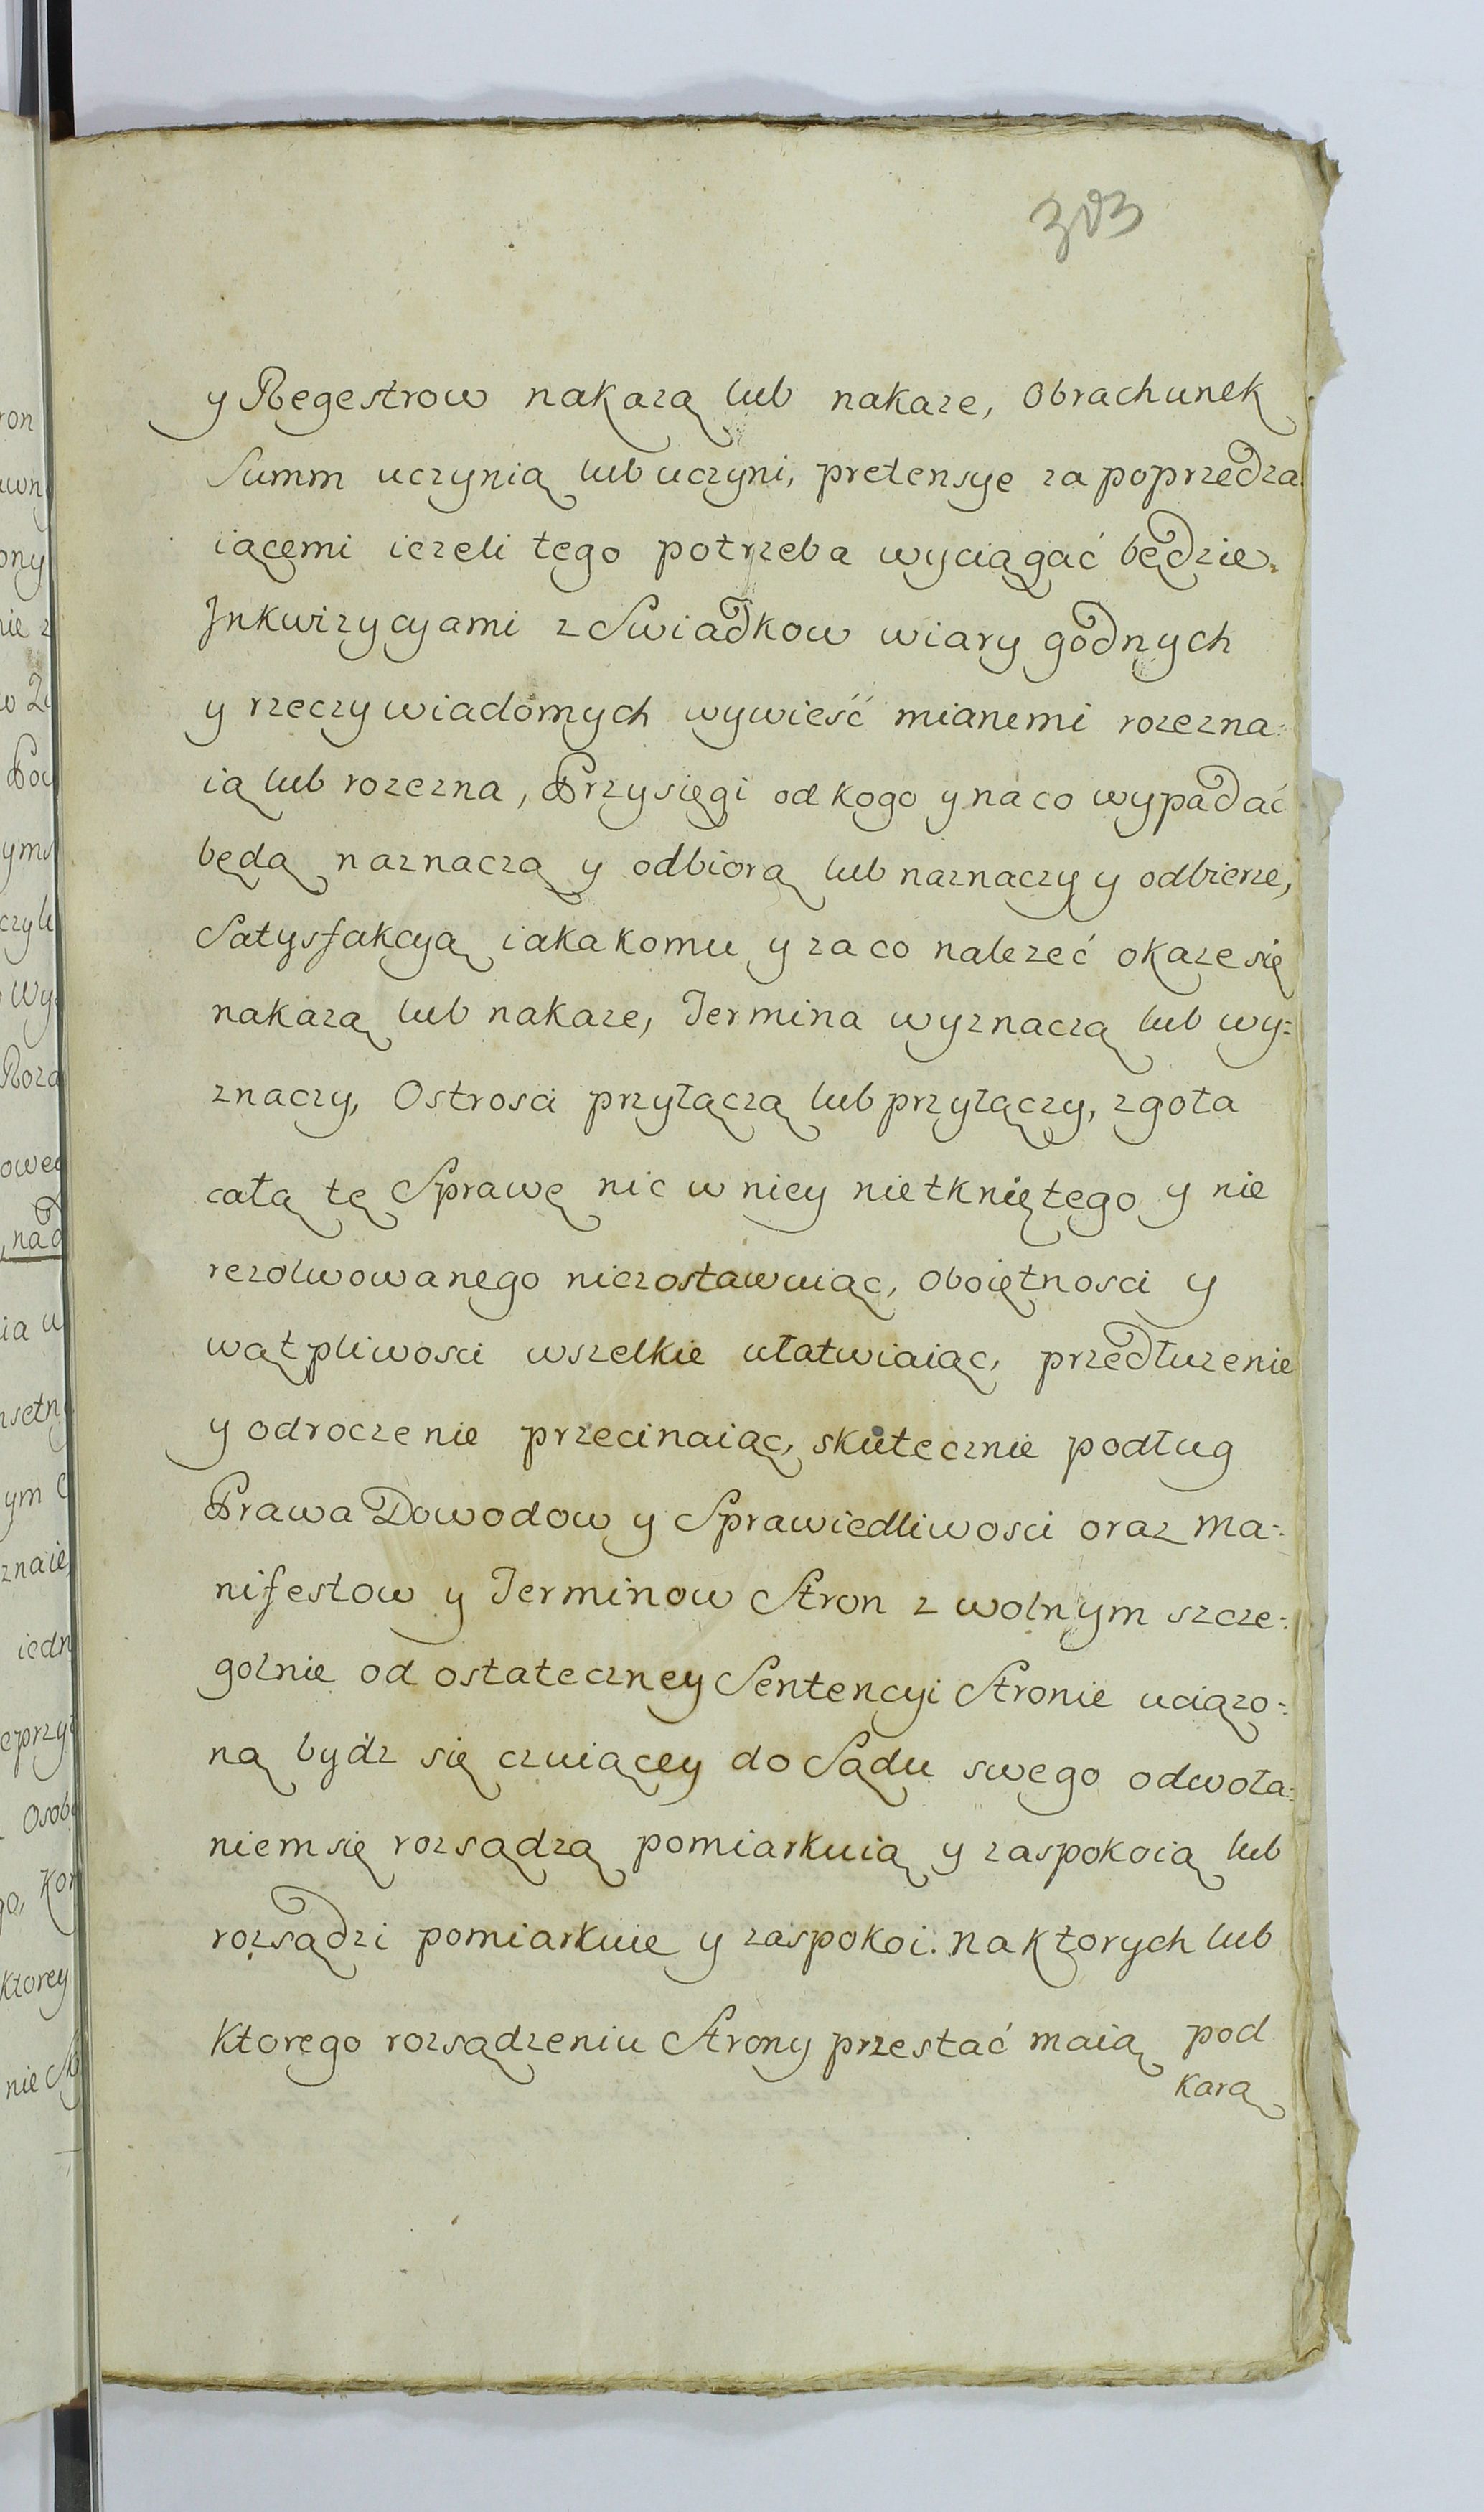 303
y Regestrow nakazą lub nakaze, Obrachunek
Summ uczynią lub uczyni, pretensye za poprzedza
iącemi iezeli tego potrzeba wyciągać będzie
Jnkwizycyami z Swiadkow wiary godnych
y rzeczy wiadomych wywieść mianemi rozezna:
ią lub rozezna, Przysięgi od kogo y na co wypadać
będą naznaczą y odbiorą lub naznaczy y odbierze,
Satysfakcyą iaka komu y za co nalezeć okaze się
nakazą lub nakaze, Termina wyznaczą lub wy=
znaczy, Ostrosci przyłączą lub przyłączy, zgoła
całą tę Sprawę nic w niey nietkniętego y nie
rezolwowanego niezostawuiąc, oboiętnosci y
wątpliwosci wszelkie ułatwiaiąc, przedłuzenie
y odroczenie przecinaiąc, skutecznie podług
Prawa Dowodow y Sprawiedliwosci oraz Ma=
nifestow y Terminow Stron z wolnym szcze=
golnie od ostateczney Sentencyi Stronie uciązo=
ną bydz się czuiącey do Sądu swego odwoła=
niem się rozsądzą pomiarkuią y zaspokoią lub
rozsądzi pomiarkuie y zaspokoi. na ktorych lub
ktorego rozsądzeniu Strony przestać maią pod
karą